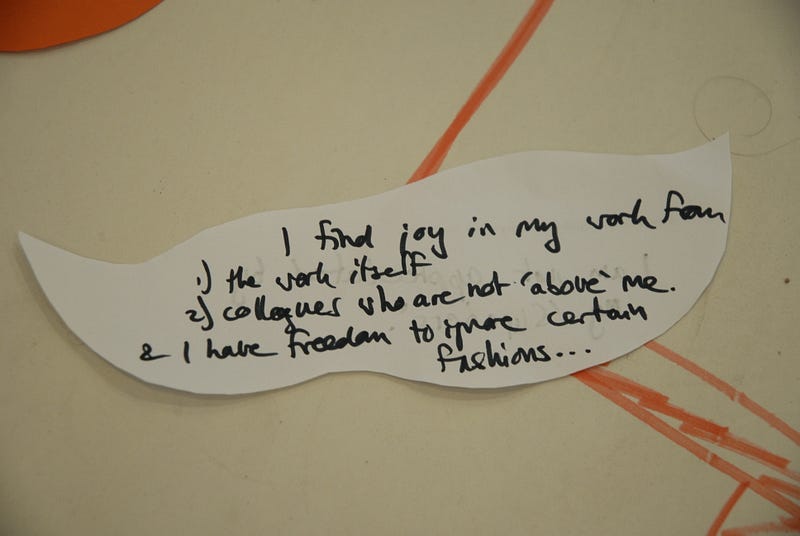 I find joy in my work from
1.) the work itself
2) collegues who are not 'above' me.
& I have freedom to ignore certain
fashions...